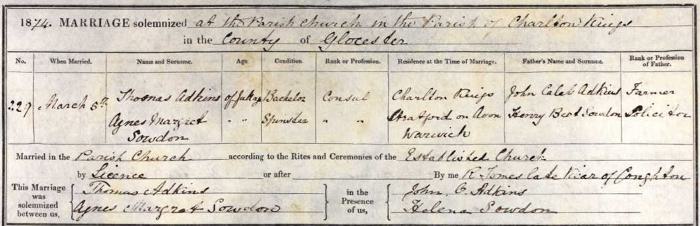 1874. MARRIAGE solemnized at the Parish Church in the Parish of Charlton Kings
in the County of Glocester
No. When Married. Name and Surname. Age Condition Rank or Profession. Residence at the Time of Marriage. Father's Name and Surname. Rank or Profession of Father.
229 March 5th Thomas Adkins of full age Bachelor Consul Charlton Kings John Caleb Adkins Farmer
Agnes Margret Sowdon " " Spinster " " Stratford on Avon Warwick Henry Bert Sowdon Solicitor
Married in the Parish Church according to the Rites and Ceremonies of the Established Church
by Licence or after By me R. Jones late Vicar of Coughton
This Marriage was solemnized between us, Thomas Adkins in the Presence of us, John C. Adkins
Agnes Margret Sowdon Helena Sowdon